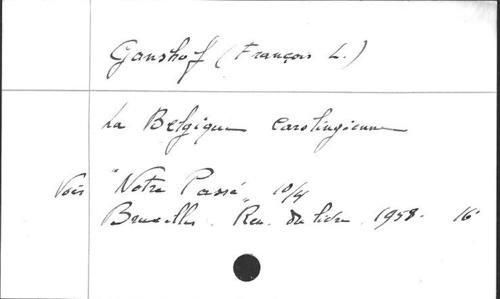 Ganshof (François L.)
La Belgique carolingienne
Voir "Notre Passé" 10/4
Bruxelles. Ren. du livre. 1958. 16°